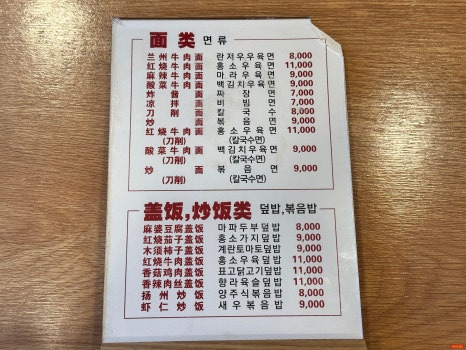 面 类 면 류
兰州牛肉面 란저우우육면 8,000
红烧牛肉面 홍소우육면 11,000
麻辣牛肉面 마라우육면 9,000
酸菜牛肉面 백김치우육면 9,000
炸酱面 짜장면 7,000
凉拌面 비빔면 7,000
刀削面 칼국수 8,000
炒面 볶음면 9,000
红烧牛肉面 홍소우육면 11,000
(刀削) (칼국수면)
酸菜牛肉面 백김치우육면 9,000
(刀削) (칼국수면)
炒面 볶음면 9,000
(刀削) (칼국수면)
盖饭,炒饭类 덮밥,볶음밥
麻婆豆腐盖饭 마파두부덮밥 8,000
红烧茄子盖饭 홍소가지덮밥 9,000
木须柿子盖饭 계란토마토덮밥 9,000
红烧牛肉盖饭 홍소우육덮밥 11,000
香菇鸡肉盖饭 표고닭고기덮밥 11,000
香辣肉丝盖饭 향라육슬덮밥 11,000
扬州炒饭 양주식볶음밥 8,000
虾仁炒饭 새우볶음밥 9,000